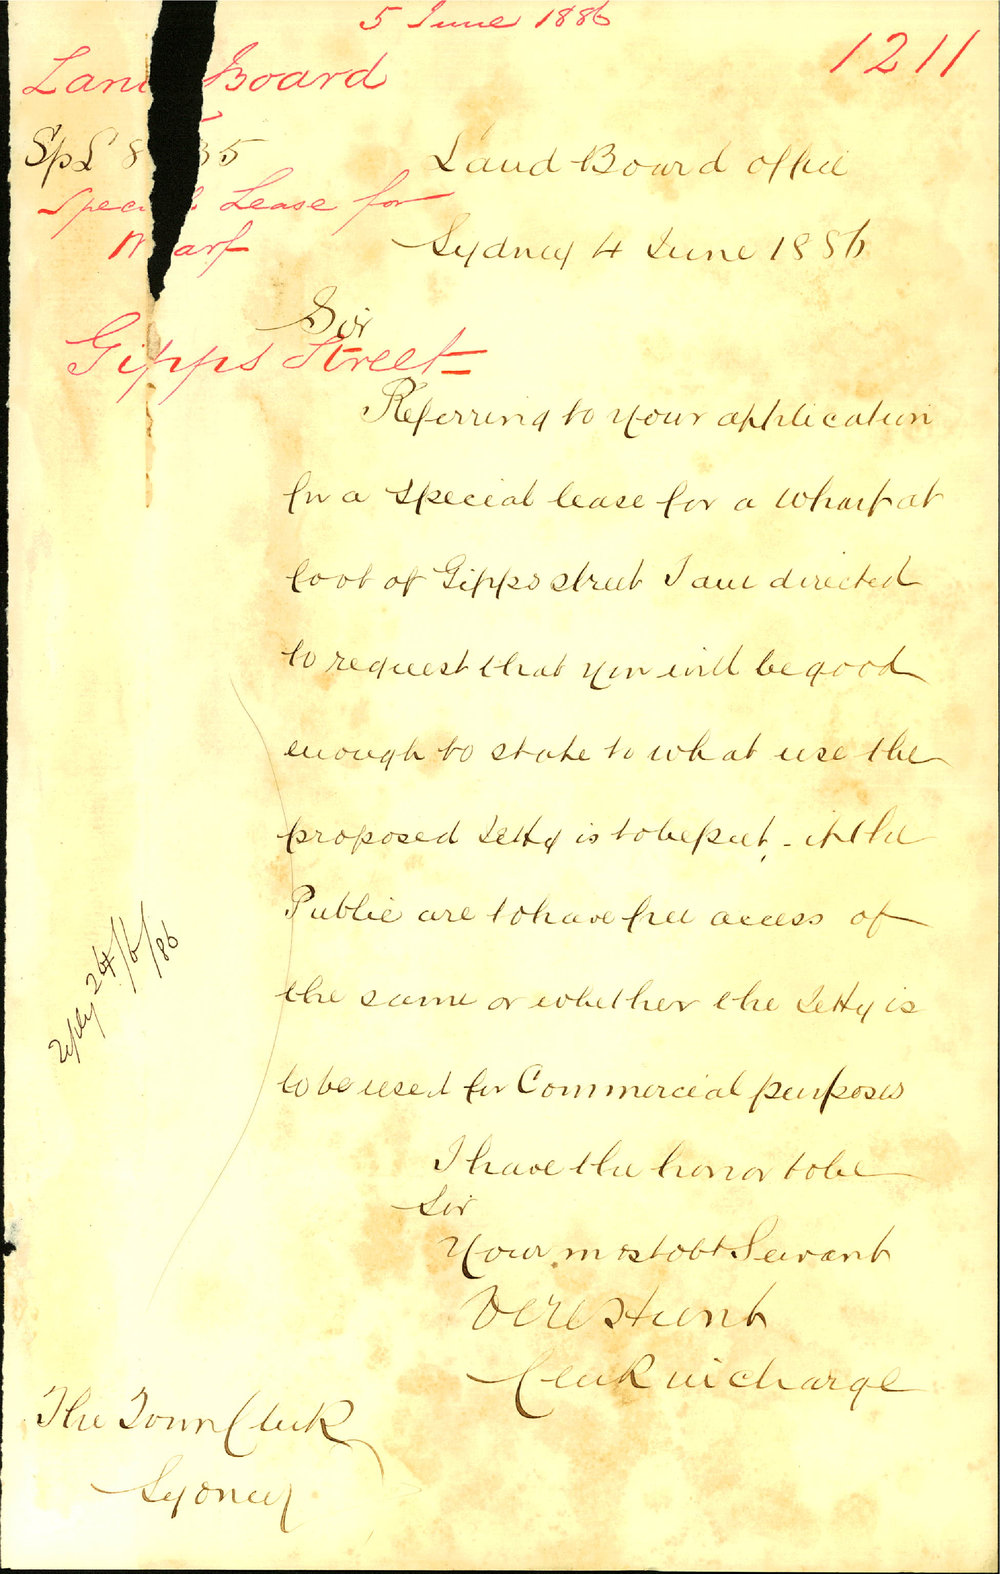 5 June 1886
1211
Land Board
Sp L 8 35
Special Lease for
Wharf
Gipps Street
Land Board office
Sydney 4 June 1886
Sir
Referring to your application
for a special lease for a wharf at
foot of Gipps street I am directed
to request that you will be good
enough to state to what use the
proposed Jetty is to be put, - if the
Public are to have free access of
the same or whether the Jetty is
to be used for Commercial purposes
I have the honor to be
Sir
Your most obt Servant
Vere Hunt
Clerk in charge
The Town Clerk
Sydney
reply 24/6/86